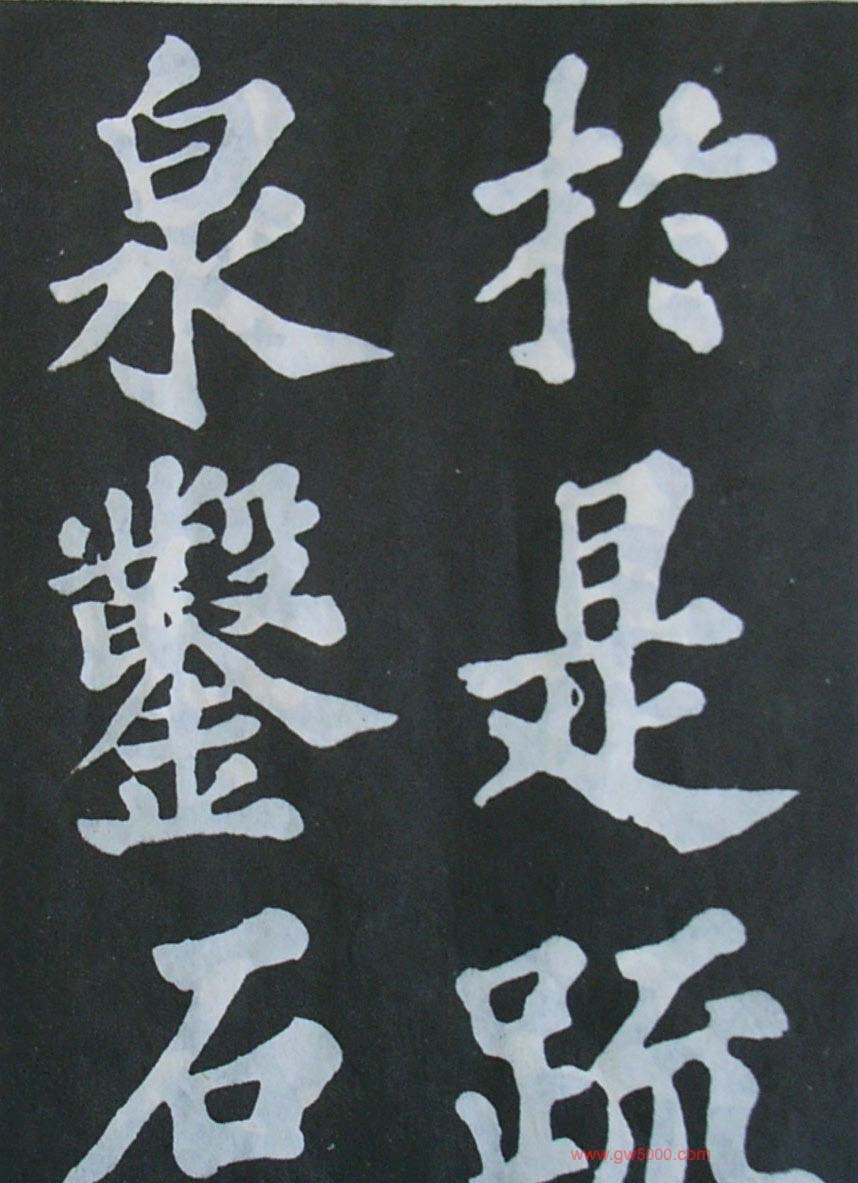 於是疏
泉鑿石
www.gw5000.com